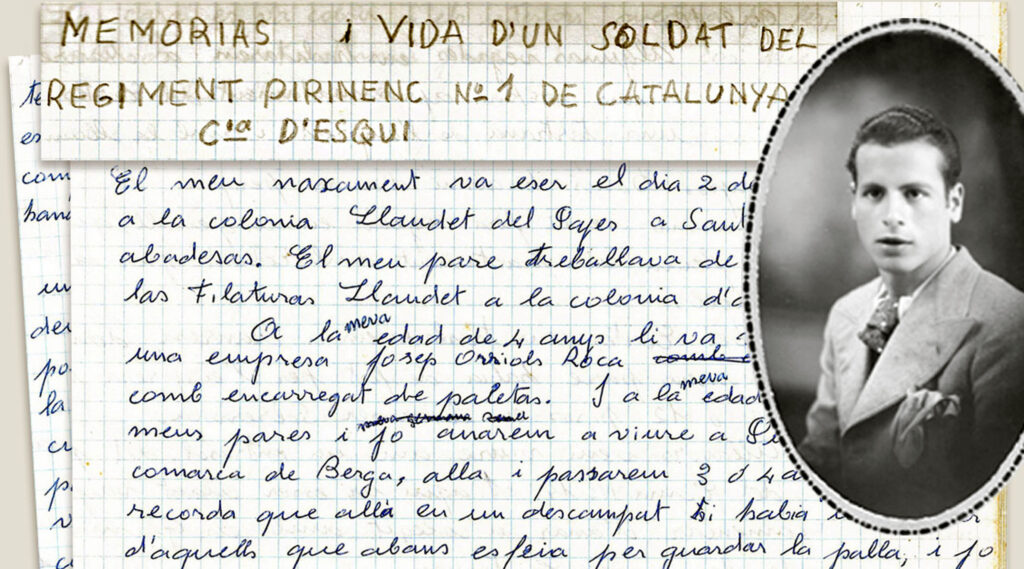 MEMORIAS i VIDA D'UN SOLDAT DEL
REGIMENT PIRINENC Nº 1 DE CATALUNYA
Cia D'ESQUI
El meu naxament va eser el dia 2 d
a la colonia Llaudet del Pajes a Sant
abadesas. El meu pare treballava de
las Filaturas Llaudet a la colonia d'a
A la meva edad de 4 anys li va
una empresa Josep Orriols Roca
comb encarregat de paletas. I a la meva edad
meus pares i jo anarem a viure a
comarca de Berga, alla i passarem 3 o 4 a
recorda que allà en un descampat hi habia
d'aquells que abans es feia per guardar la palla, i jo